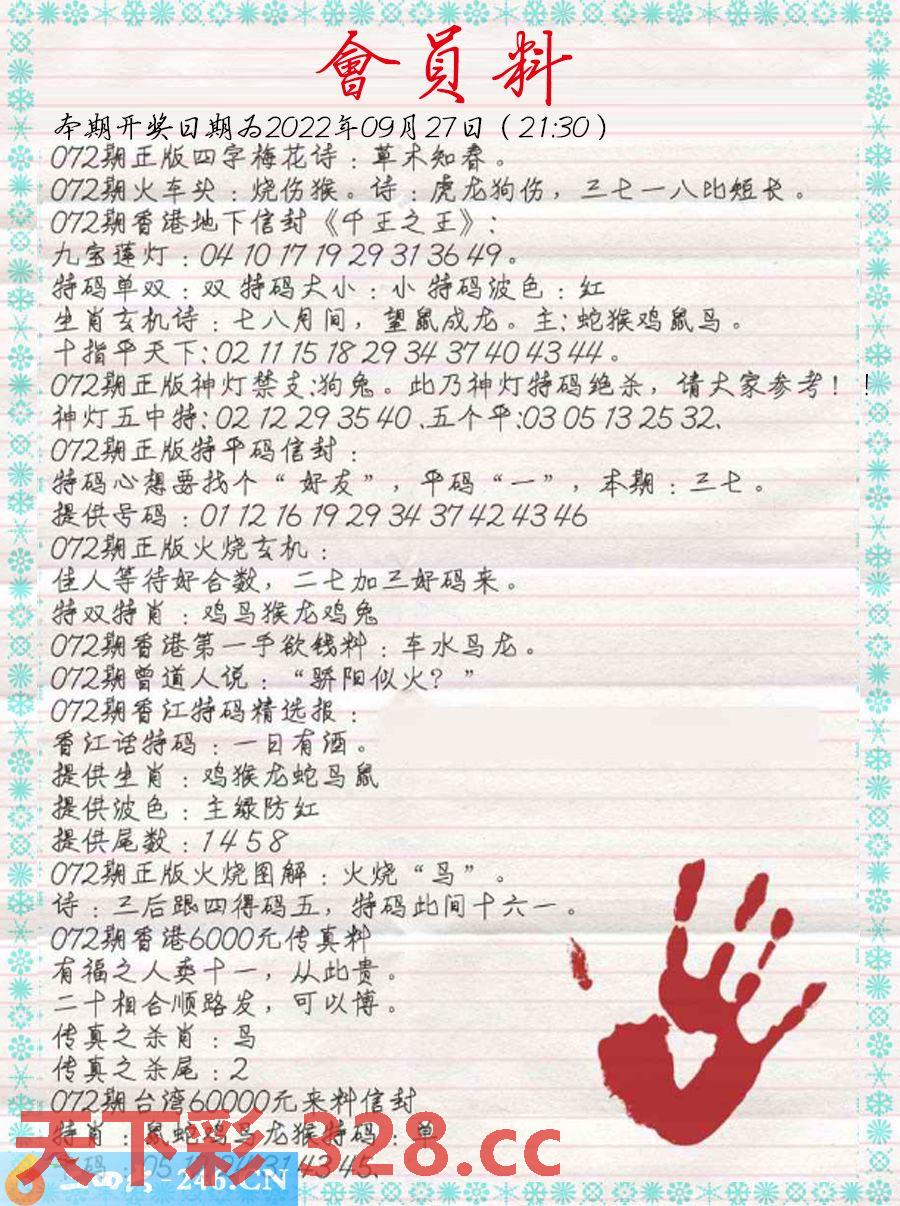 會員料
本期开奖日期为2022年09月27日（21:30）
072期正版四字梅花诗：草木知春。
072期火车头：烧伤猴。诗：虎龙狗伤，三七一八比短长。
072期香港地下信封《千王之王》：
九宝莲灯：04 10 17 19 29 31 36 49。
特码单双：双 特码大小：小 特码波色：红
生肖玄机诗：七八月间，望鼠成龙。主：蛇猴鸡鼠马。
十指平天下：02 11 15 18 29 34 37 40 43 44。
072期正版神灯禁支：狗兔。此乃神灯特码绝杀，请大家参考！！
神灯五中特：02 12 29 35 40 、五个平：03 05 13 25 32、
072期正版特平码信封：
特码心想要找个“好友”，平码“一”，本期：三七。
提供号码：01 12 16 19 29 34 37 42 43 46
072期正版火烧玄机：
佳人等待好合数，二七加三好码来。
特双特肖：鸡马猴龙鸡兔
072期香港第一手欲钱料：车水马龙。
072期曾道人说：“骄阳似火？”
072期香江特码精选报：
香江话特码：一日有酒。
提供生肖：鸡猴龙蛇马鼠
提供波色：主绿防红
提供尾数：1 4 5 8
072期正版火烧图解：火烧“马”。
诗：三后跟四得码五，特码此间十六一。
072期香港6000元传真料
有福之人卖十一，从此贵。
二十相合顺路发，可以博。
传真之杀肖：马
传真之杀尾：2
072期台湾60000元来料信封
特肖：鼠蛇鸡马龙猴特码：单
码：05 31 43 45、
天下彩 328.cc
-246.CN